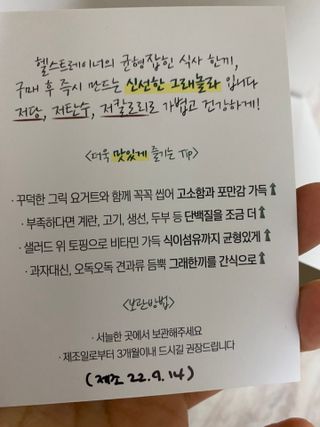 헬스트레이너의 균형잡힌 식사 한끼,
구매 후 즉시 만드는 신선한 그래놀라 입니다
저당, 저탄수, 저칼로리로 가볍고 건강하게!
<더욱 맛있게 즐기는 Tip>
· 꾸덕한 그릭 요거트와 함께 꼭꼭 씹어 고소함과 포만감 가득⬆
· 부족하다면 계란, 고기, 생선, 두부 등 단백질을 조금 더⬆
· 샐러드 위 토핑으로 비타민 가득 식이섬유까지 균형있게⬆
· 과자대신, 오독오독 견과류 듬뿍 그래한끼를 간식으로⬆
<보관방법>
· 서늘한 곳에서 보관해주세요
· 제조일로부터 3개월이내 드시길 권장드립니다
(제조 22.9.14)